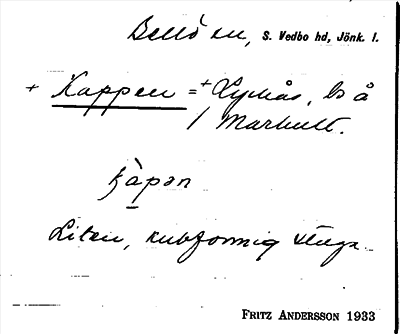 Bellö sn, S. Vedbo hd, Jönk. l.
+ Kappen = + Lyckås, ls å
/ Marhult.
kàpən
Liten, kubformig stuga.
FRITZ ANDERSSON 1933